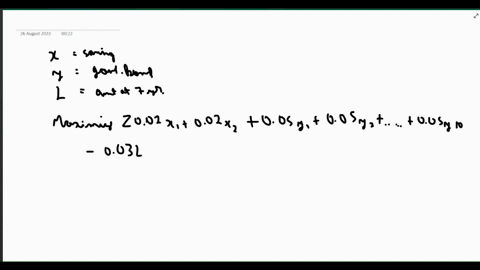 26 August 2023 00:22
x = saving
y = govt. bond
L = amt at 7 yr
Maximiz Z 0.02x₁ + 0.02x₂ + 0.05y₁ + 0.05y₂ + .... + 0.05y10
- 0.03L